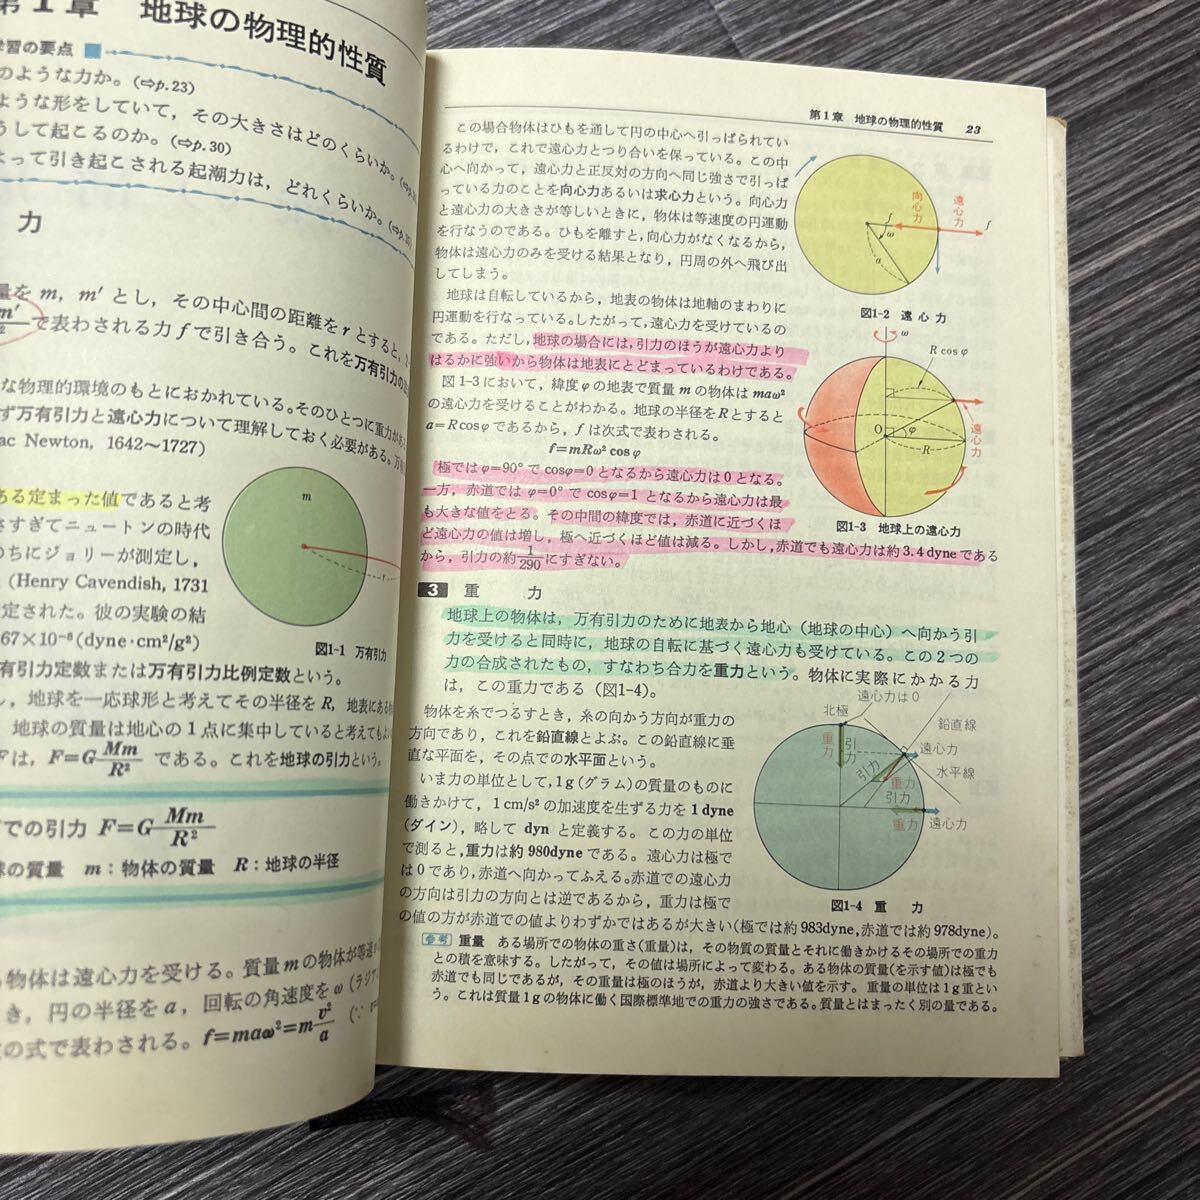 第1章 地球の物理的性質
学習の要点
のような力か。(⇨p.23)
ような形をしていて，その大きさはどのくらいか。
うして起こるのか。(⇨p.30)
よって引き起こされる起潮力は，どれくらいか。
力
量を m，m′ とし，その中心間の距離を r とすると，
で表わされる力 f で引き合う。これを万有引力の
な物理的環境のもとにおかれている。そのひとつに重力が
ず万有引力と遠心力について理解しておく必要がある。万
ac Newton, 1642〜1727)
ある定まった値であると考
さすぎてニュートンの時代
うちにジョリーが測定し，
(Henry Cavendish, 1731
定された。彼の実験の結
67×10⁻⁸(dyne・cm²/g²)
有引力定数または万有引力比例定数という。
m
r
図1-1 万有引力
し，地球を一応球形と考えてその半径を R，地表にある
地球の質量は地心の1点に集中していると考えても
Fは，F=G Mm/R² である。これを地球の引力という。
での引力 F=G Mm/R²
球の質量 m：物体の質量 R：地球の半径
物体は遠心力を受ける。質量 m の物体が等速
き，円の半径を a，回転の角速度を ω (ラジア
の式で表わされる。f=maω²=m v²/a (∵
第1章 地球の物理的性質 23
この場合物体はひもを通して円の中心へ引っぱられてい
るわけで，これで遠心力とつり合いを保っている。この中
心へ向かって，遠心力と正反対の方向へ同じ強さで引っぱ
っている力のことを向心力あるいは求心力という。向心力
と遠心力の大きさが等しいときに，物体は等速度の円運動
を行なうのである。ひもを離すと，向心力がなくなるから，
物体は遠心力のみを受ける結果となり，円周の外へ飛び出
してしまう。
向心力
遠心力
f
f
ω
a
図1-2 遠心力
地球は自転しているから，地表の物体は地軸のまわりに
円運動を行なっている。したがって，遠心力を受けているの
である。ただし，地球の場合には，引力のほうが遠心力より
はるかに強いから物体は地表にとどまっているわけである。
図1-3において，緯度 φ の地表で質量 m の物体は maω²
の遠心力を受けることがわかる。地球の半径を R とすると
a=R cos φ であるから，f は次式で表わされる。
f=mRω² cos φ
極では φ=90° で cosφ=0 となるから遠心力は0となる。
一方，赤道では φ=0° で cosφ=1 となるから遠心力は最
も大きな値をとる。その中間の緯度では，赤道に近づくほ
ど遠心力の値は増し，極へ近づくほど値は減る。しかし，赤道でも遠心力は約3.4dyneである
から，引力の約 1/290 にすぎない。
ω
R cos φ
O
φ
R
遠心力
図1-3 地球上の遠心力
3 重 力
地球上の物体は，万有引力のために地表から地心（地球の中心）へ向かう引
力を受けると同時に，地球の自転に基づく遠心力も受けている。この2つの
力の合成されたもの，すなわち合力を重力という。物体に実際にかかる力
は，この重力である（図1-4）。
物体を糸でつるすとき，糸の向かう方向が重力の
方向であり，これを鉛直線とよぶ。この鉛直線に垂
直な平面を，その点での水平面という。
いま力の単位として，1g(グラム)の質量のものに
働きかけて，1cm/s² の加速度を生ずる力を 1 dyne
(ダイン)，略して dyn と定義する。この力の単位
で測ると，重力は約980dyneである。遠心力は極で
は0であり，赤道へ向かってふえる。赤道での遠心力
の方向は引力の方向とは逆であるから，重力は極で
の値の方が赤道での値よりわずかではあるが大きい(極では約983dyne，赤道では約978dyne)。
遠心力は0
北極
鉛直線
重力
引力
遠心力
水平線
引力
重力
引力
重力
遠心力
図1-4 重 力
参考 重量 ある場所での物体の重さ(重量)は，その物質の質量とそれに働きかけるその場所での重力
との積を意味する。したがって，その値は場所によって変わる。ある物体の質量(を示す値)は極でも
赤道でも同じであるが，その重量は極のほうが，赤道より大きい値を示す。重量の単位は1g重とい
う。これは質量1gの物体に働く国際標準地での重力の強さである。質量とはまったく別の量である。